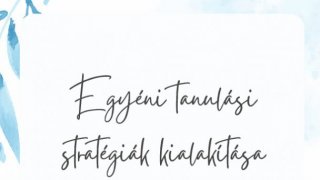 Egyéni tanulási
stratégiák kialakítása